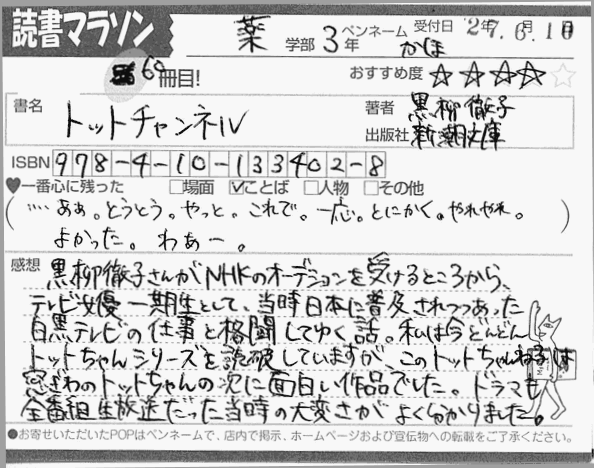 読書マラソン
薬 学部 3年 ペンネーム かほ 受付日 27.6.10
60冊目!
おすすめ度 ☆☆☆☆☆
書名 トットチャンネル
著者 黒柳徹子
出版社 新潮文庫
ISBN 978-4-10-133402-8
♥一番心に残った □場面 ☑ことば □人物 □その他
(‥‥ああ。とうとう。やっと。これで。一応。とにかく。やれやれ。
よかった。わぁー。)
感想 黒柳徹子さんがNHKのオーデションを受けるところから、
テレビ女優一期生として、当時日本に普及されつつあった
白黒テレビの仕事と格闘してゆく話。私は今どんどん
トットちゃんシリーズを読破していますが、このトットちゃんねるは
窓ぎわのトットちゃんの次に面白い作品でした。ドラマも
全番組生放送だった当時の大変さがよく分かりました。
●お寄せいただいたPOPはペンネームで、店内で掲示、ホームページおよび宣伝物への転載をご了承ください。